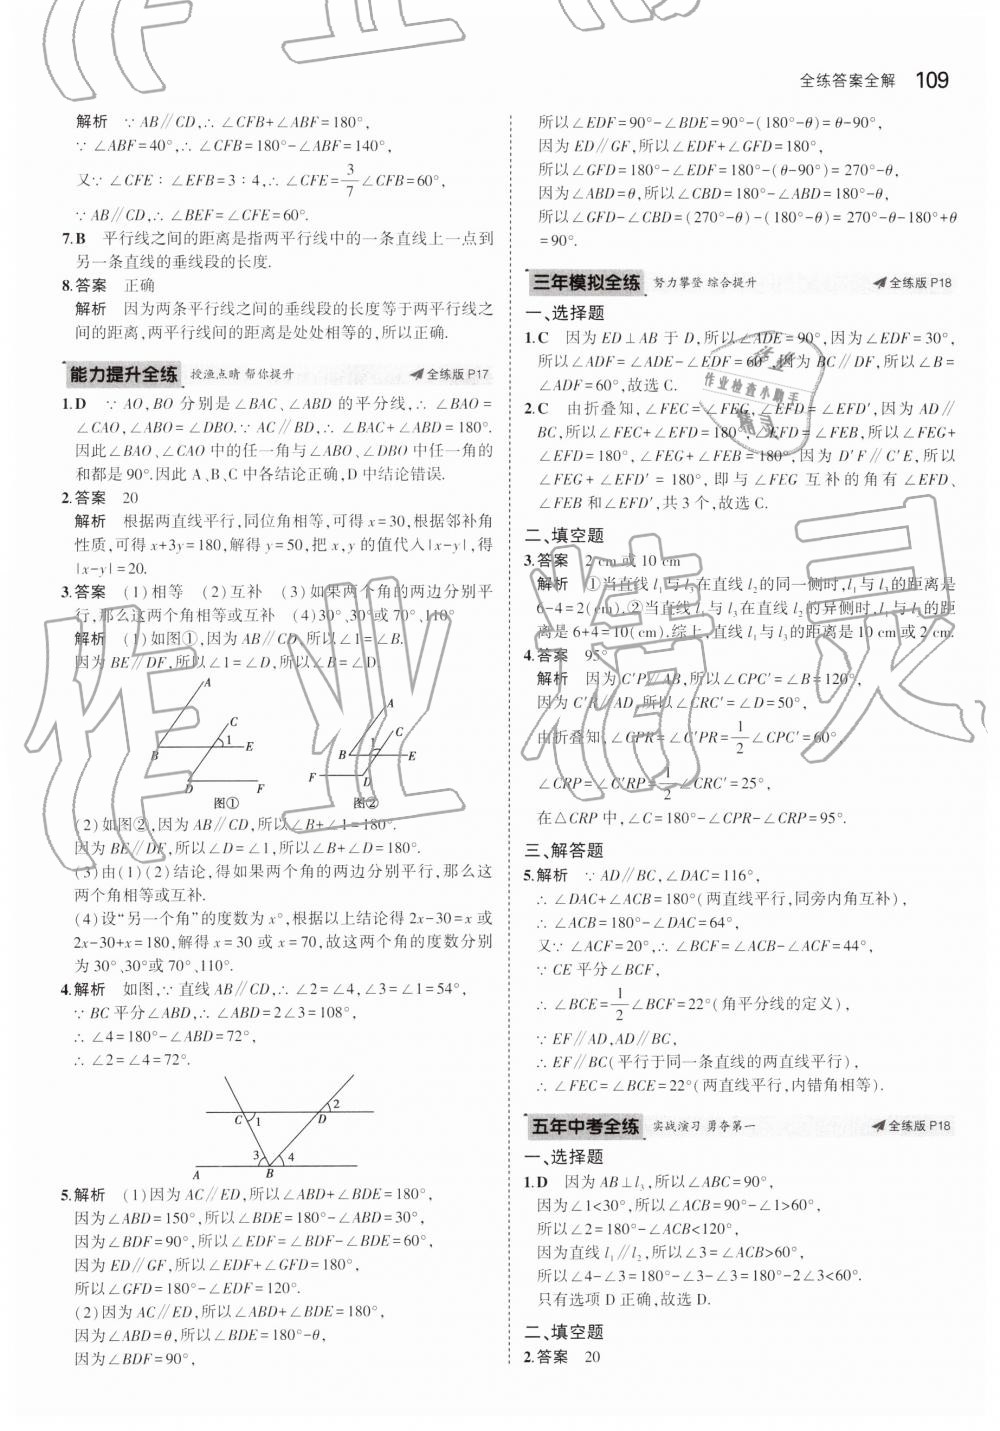 全练答案全解 109
解析 ∵AB∥CD,∴∠CFB+∠ABF=180°,
∵∠ABF=40°,∴∠CFB=180°-∠ABF=140°,
又∵∠CFE∶∠EFB=3∶4,∴∠CFE=3/7∠CFB=60°,
∵AB∥CD,∴∠BEF=∠CFE=60°.
7.B 平行线之间的距离是指两平行线中的一条直线上一点到
另一条直线的垂线段的长度.
8.答案 正确
解析 因为两条平行线之间的垂线段的长度等于两平行线之
间的距离,两平行线间的距离是处处相等的,所以正确.
能力提升全练 授渔点睛 帮你提升 全练版P17
1.D ∵AO,BO分别是∠BAC、∠ABD的平分线,∴∠BAO=
∠CAO,∠ABO=∠DBO.∵AC∥BD,∴∠BAC+∠ABD=180°.
因此∠BAO、∠CAO中的任一角与∠ABO、∠DBO中任一角的
和都是90°.因此A、B、C中各结论正确,D中结论错误.
2.答案 20
解析 根据两直线平行,同位角相等,可得x=30,根据邻补角
性质,可得x+3y=180,解得y=50,把x,y的值代入|x-y|,得
|x-y|=20.
3.答案 (1)相等 (2)互补 (3)如果两个角的两边分别平
行,那么这两个角相等或互补 (4)30°、30°或70°、110°
解析 (1)如图①,因为AB∥CD,所以∠1=∠B.
因为BE∥DF,所以∠1=∠D,所以∠B=∠D.
A
C
B
1
E
D
F
图①
A
C
B
1
E
F
D
图②
(2)如图②,因为AB∥CD,所以∠B+∠1=180°.
因为BE∥DF,所以∠D=∠1,所以∠B+∠D=180°.
(3)由(1)(2)结论,得如果两个角的两边分别平行,那么这
两个角相等或互补.
(4)设“另一个角”的度数为x°,根据以上结论得2x-30=x或
2x-30+x=180,解得x=30或x=70,故这两个角的度数分别
为30°、30°或70°、110°.
4.解析 如图,∵直线AB∥CD,∴∠2=∠4,∠3=∠1=54°,
∵BC平分∠ABD,∴∠ABD=2∠3=108°,
∴∠4=180°-∠ABD=72°,
∴∠2=∠4=72°.
C
1
D
2
3
4
A
B
5.解析 (1)因为AC∥ED,所以∠ABD+∠BDE=180°,
因为∠ABD=150°,所以∠BDE=180°-∠ABD=30°,
因为∠BDF=90°,所以∠EDF=∠BDF-∠BDE=60°,
因为ED∥GF,所以∠EDF+∠GFD=180°,
所以∠GFD=180°-∠EDF=120°.
(2)因为AC∥ED,所以∠ABD+∠BDE=180°,
因为∠ABD=θ,所以∠BDE=180°-θ,
因为∠BDF=90°,
所以∠EDF=90°-∠BDE=90°-(180°-θ)=θ-90°,
因为ED∥GF,所以∠EDF+∠GFD=180°,
所以∠GFD=180°-∠EDF=180°-(θ-90°)=270°-θ,
因为∠ABD=θ,所以∠CBD=180°-∠ABD=180°-θ,
所以∠GFD-∠CBD=(270°-θ)-(180°-θ)=270°-θ-180°+θ
=90°.
三年模拟全练 努力攀登 综合提升 全练版P18
一、选择题
1.C 因为ED⊥AB于D,所以∠ADE=90°,因为∠EDF=30°,
所以∠ADF=∠ADE-∠EDF=60°,因为BC∥DF,所以∠B=
∠ADF=60°,故选C.
2.C 由折叠知,∠FEC=∠FEG,∠EFD=∠EFD′,因为AD∥
BC,所以∠FEC+∠EFD=180°,∠EFD=∠FEB,所以∠FEG+
∠EFD=180°,∠FEG+∠FEB=180°,因为D′F∥C′E,所以
∠FEG+∠EFD′=180°,即与∠FEG互补的角有∠EFD、
∠FEB和∠EFD′,共3个,故选C.
二、填空题
3.答案 2 cm或10 cm
解析 ①当直线l₁与l₃在直线l₂的同一侧时,l₁与l₃的距离是
6-4=2(cm).②当直线l₁与l₃在直线l₂的异侧时,l₁与l₃的距
离是6+4=10(cm).综上,直线l₁与l₃的距离是10 cm或2 cm.
4.答案 95°
解析 因为C′P∥AB,所以∠CPC′=∠B=120°,
因为C′R∥AD,所以∠CRC′=∠D=50°,
由折叠知,∠CPR=∠C′PR=1/2∠CPC′=60°,
∠CRP=∠C′RP=1/2∠CRC′=25°,
在△CRP中,∠C=180°-∠CPR-∠CRP=95°.
三、解答题
5.解析 ∵AD∥BC,∠DAC=116°,
∴∠DAC+∠ACB=180°(两直线平行,同旁内角互补),
∴∠ACB=180°-∠DAC=64°,
又∵∠ACF=20°,∴∠BCF=∠ACB-∠ACF=44°,
∵CE平分∠BCF,
∴∠BCE=1/2∠BCF=22°(角平分线的定义),
∵EF∥AD,AD∥BC,
∴EF∥BC(平行于同一条直线的两直线平行),
∴∠FEC=∠BCE=22°(两直线平行,内错角相等).
五年中考全练 实战演习 勇夺第一 全练版P18
一、选择题
1.D 因为AB⊥l₃,所以∠ABC=90°,
因为∠1<30°,所以∠ACB=90°-∠1>60°,
所以∠2=180°-∠ACB<120°,
因为直线l₁∥l₂,所以∠3=∠ACB>60°,
所以∠4-∠3=180°-∠3-∠3=180°-2∠3<60°.
只有选项D正确,故选D.
二、填空题
2.答案 20
作业精灵
作业检查小助手
精灵